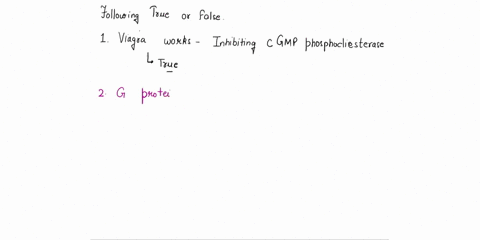 Following True or False.
1. Viagra works - Inhibiting cGMP phosphodiesterase
↳ True
2 G protei